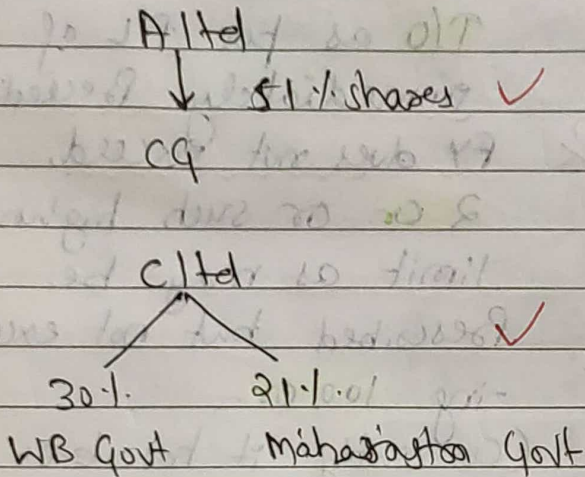 A ltd
51% shares
CG
C ltd
30% 21%
WB Govt Maharastra Govt